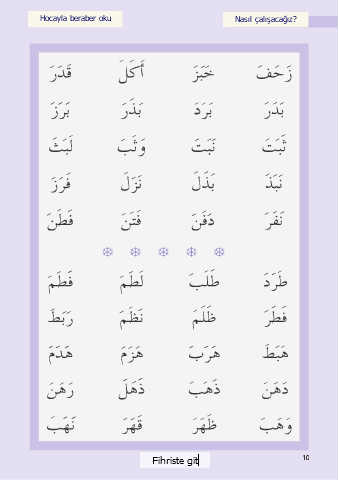 Hocayla beraber oku
Nasıl çalışacağız?
زَحَفَ خَبَزَ أَكَلَ قَدَرَ
بَدَرَ بَرَدَ بَذَرَ بَرَزَ
ثَبَتَ نَبَتَ وَثَبَ لَبَثَ
نَبَذَ بَذَلَ نَزَلَ فَرَزَ
نَفَرَ دَفَنَ فَتَنَ فَطَنَ
طَرَدَ طَلَبَ لَطَمَ فَطَمَ
فَطَرَ ظَلَمَ نَظَمَ رَبَطَ
هَبَطَ هَرَبَ هَزَمَ هَدَمَ
دَهَنَ ذَهَبَ ذَهَلَ رَهَنَ
وَهَبَ ظَهَرَ قَهَرَ نَهَبَ
Fihriste git
10